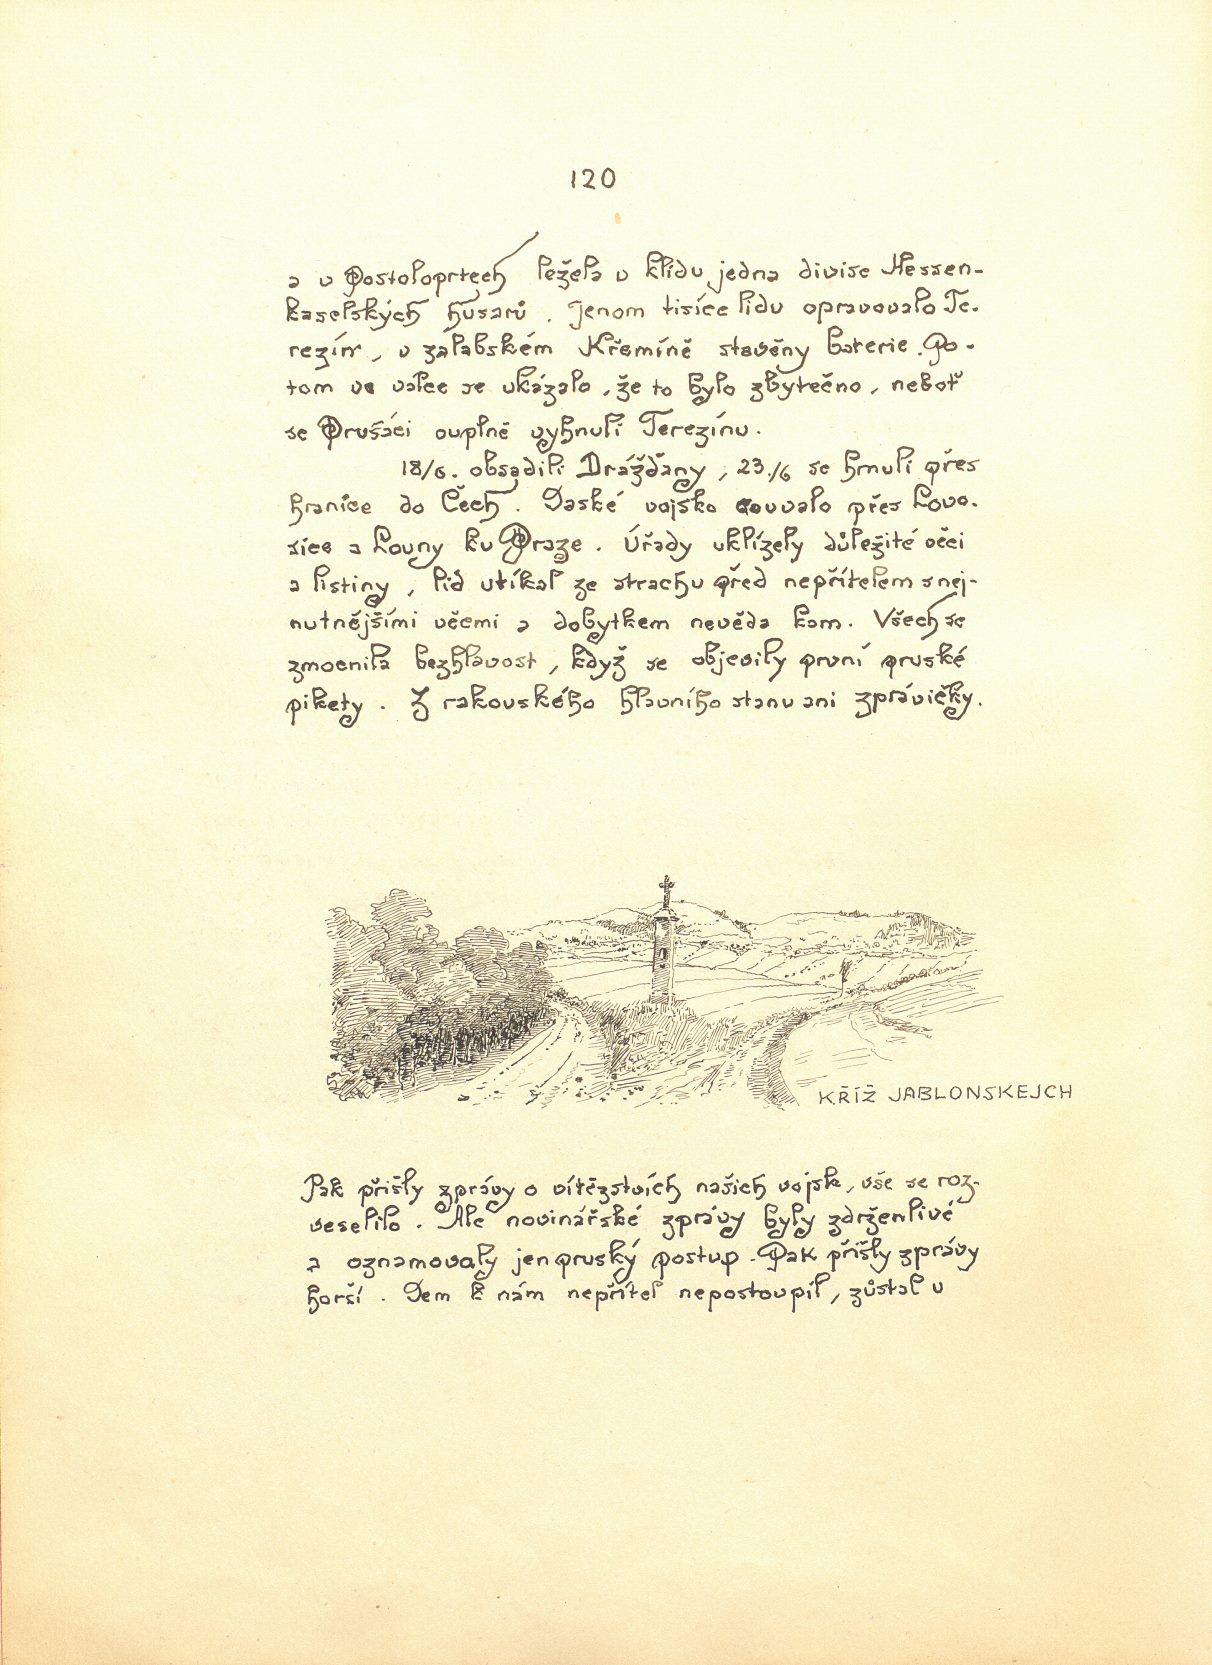 120
a v Postoloprtech ležela v klidu jedna divise Hessen-
kaselských husarů. Jenom tisíce lidu opravovalo Te-
rezín, v zálabském Křemíně stavěny baterie. Po-
tom ve válce se ukázalo, že to bylo zbytečno, neboť
se Prušáci ouplně vyhnuli Terezínu.
18/6. obsadili Drážďany, 23./6 se hrnuli přes
hranice do Čech. Saské vojsko couvalo přes Lovo-
sice a Louny ku Praze. Úřady uklízely důležité věci
a listiny, lid utíkal ze strachu před nepřítelem s nej-
nutnějšími věcmi a dobytkem nevěda kam. Všech se
zmocnila bezhlavost, když se objevily první pruské
pikety. Z rakouského hlavního stanu ani zprávičky.
KŘÍŽ JABLONSKEJCH
Pak přišly zprávy o vítězstvích našich vojsk, vše se roz-
veselilo. Ale novinářské zprávy byly zdrženlivé
a oznamovaly jen pruský postup. Pak přišly zprávy
horší. Sem k nám nepřítel nepostoupil, zůstal v